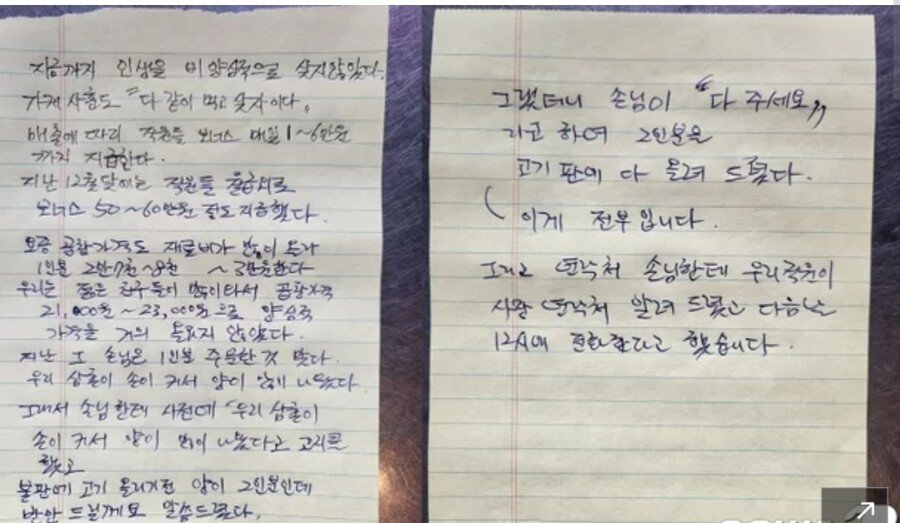 지금까지 인생을 비양심적으로 살지않았다.
가게 사훈도 "다 같이 먹고 살자이다„
매출에 따라 직원들 보너스 매일 1~6만원
까지 지급한다.
지난 12월달에는 직원들 월급외로
보너스 50~60만원 정도 지급했다.
요즘 곱창가격도 재료비가 많이 든다
1인분 2만7천~8천 ~3만원한다
우리는 젊은 친구들이 많이 와서 곱창가격
21,000원~23,000원으로 양심적
가격을 거의 올리지 않았다.
지난 그 손님은 1인분 주문한 것 맞다.
우리 삼촌이 손이 커서 양이 많이 나왔다
그래서 손님한테 사전에 "우리 삼촌이
손이 커서 양이 많이 나왔다고 고지를
했고
불판에 고기 올리기전 양이 2인분인데
반만 드릴께요 말씀드렸다.
그랬더니 손님이 "다 주세요„
라고 하여 2인분을
고기 판에 다 올려 드렸다.
이게 전부입니다
그리고 연락처 손님한테 우리직원이
사장 연락처 알려 드렸고 다음날
12시에 전화한다고 했습니다.